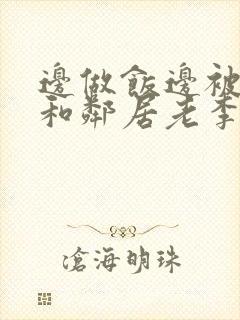 邊做飯邊被
和鄰居老李
滄海明珠